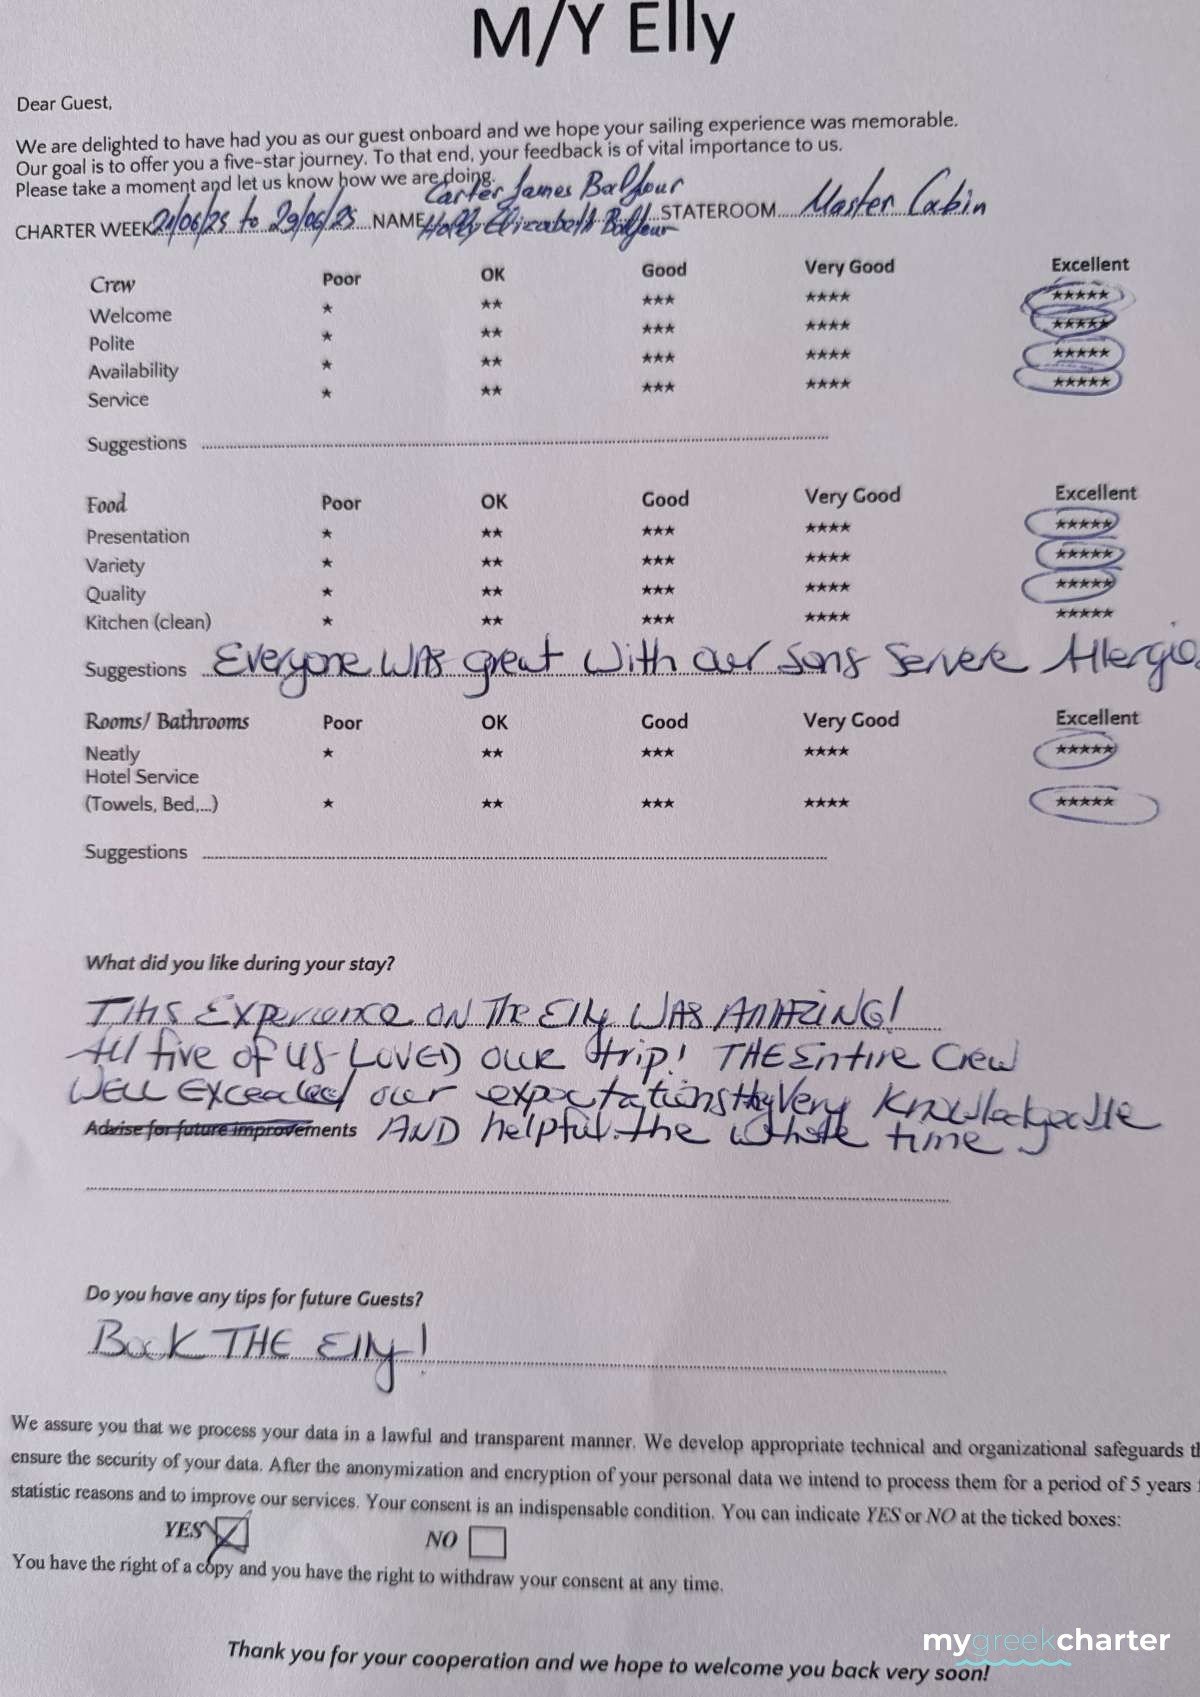 M/Y Elly
Dear Guest,
We are delighted to have had you as our guest onboard and we hope your sailing experience was memorable.
Our goal is to offer you a five-star journey. To that end, your feedback is of vital importance to us.
Please take a moment and let us know how we are doing.
Carter James Balfour
CHARTER WEEK 21/06/25 to 29/06/25 NAME Holly Elizabeth Balfour STATEROOM Master Cabin
Crew Poor OK Good Very Good Excellent
Welcome ★ ★★ ★★★ ★★★★ ★★★★★
Polite ★ ★★ ★★★ ★★★★ ★★★★★
Availability ★ ★★ ★★★ ★★★★ ★★★★★
Service ★ ★★ ★★★ ★★★★ ★★★★★
Suggestions
Food Poor OK Good Very Good Excellent
Presentation ★ ★★ ★★★ ★★★★ ★★★★★
Variety ★ ★★ ★★★ ★★★★ ★★★★★
Quality ★ ★★ ★★★ ★★★★ ★★★★★
Kitchen (clean) ★ ★★ ★★★ ★★★★ ★★★★★
Suggestions Everyone WAS great with our sons Servere Allergies
Rooms/ Bathrooms Poor OK Good Very Good Excellent
Neatly ★ ★★ ★★★ ★★★★ ★★★★★
Hotel Service
(Towels, Bed,...) ★ ★★ ★★★ ★★★★ ★★★★★
Suggestions
What did you like during your stay?
THIS Experience ON The Elly WAS AMAZING!
All five of us LOVED our trip! THE Entire Crew
WELL Exceeded our expectations Very Knowledgeable
Advise for future improvements AND helpful the whole time
Do you have any tips for future Guests?
Book THE Elly!
We assure you that we process your data in a lawful and transparent manner. We develop appropriate technical and organizational safeguards th
ensure the security of your data. After the anonymization and encryption of your personal data we intend to process them for a period of 5 years f
statistic reasons and to improve our services. Your consent is an indispensable condition. You can indicate YES or NO at the ticked boxes:
YES NO
You have the right of a copy and you have the right to withdraw your consent at any time.
mygreekcharter
Thank you for your cooperation and we hope to welcome you back very soon!